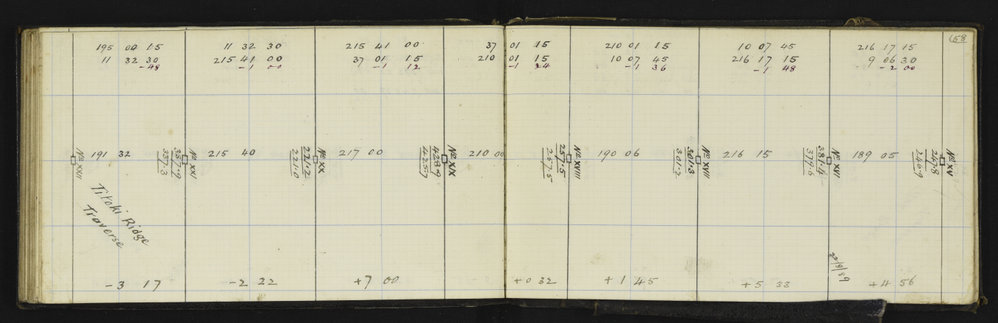 68
195 00 15   11 32 30   215 41 00   37 01 15   210 01 15   10 07 45   216 17 15
11 32 30   215 41 00   37 01 15   210 01 15   10 07 45   216 17 15   9 06 30
-48   -1 00   -1 12   -1 24   -1 36   -1 48   -2 00
No XXII   191 32   No XXI   215 40   No XX   217 00   No XIX   210 00   No XVIII   190 06   No XVII   216 15   No XVI   189 05   No XV
357.9   221.2   428.9   257.5   300.3   381.4   247.8
357.3   221.0   425.7   257.5   301.2   379.6   246.9
Titoki Ridge
Traverse
22/8/89
-3 17   -2 22   +7 00   +0 32   +1 45   +5 33   +4 56